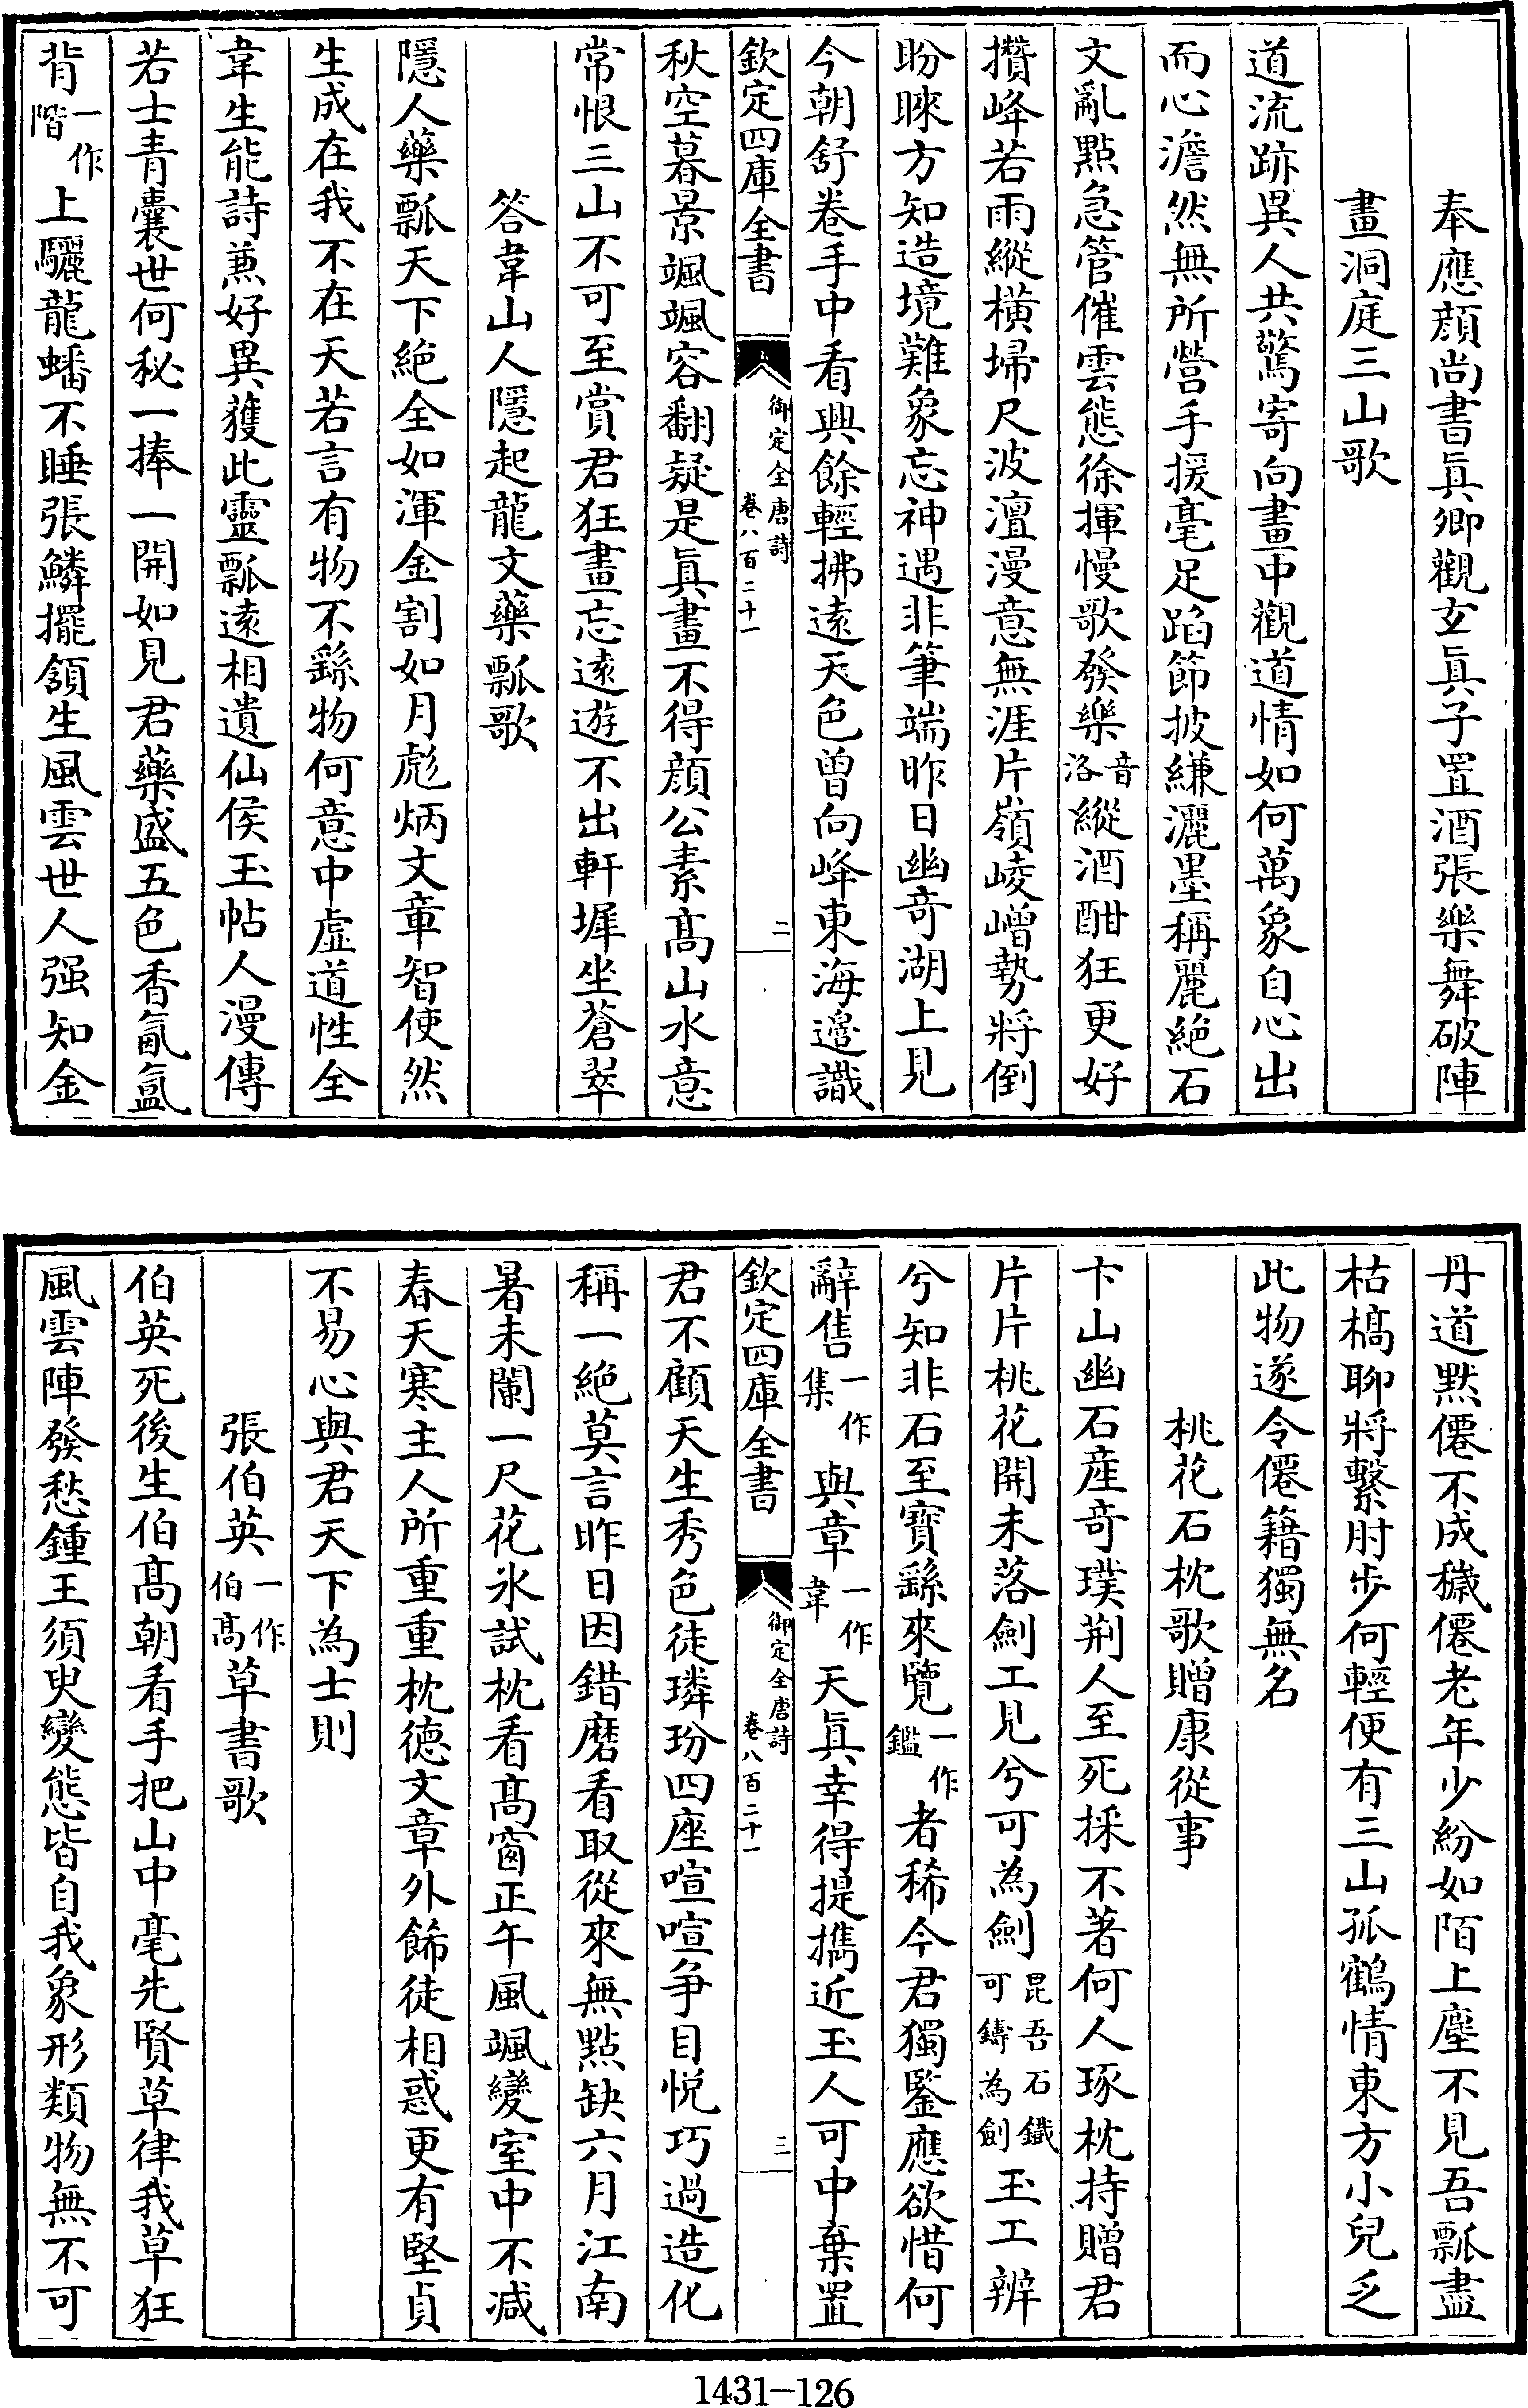 奉應顔尚書眞卿觀玄眞子置酒張樂舞破陣
畫洞庭三山歌
道流跡異人共驚寄向畫中觀道情如何萬象自心出
而心澹然無所營手援毫足蹈節披縑灑墨稱麗絶石
文亂㸃急管催雲態徐揮慢歌發樂音洛縱酒酣狂更好
攢峰若雨縱橫埽尺波澶漫意無涯片嶺崚嶒勢將倒
盼睞方知造境難象忘神遇非筆端昨日幽奇湖上見
今朝舒卷手中看興餘輕拂遠天色曾向峰東海邊識
欽定四庫全書 御定全唐詩 卷八百二十一 二
秋空暮景颯颯容翻疑是眞畫不得顔公素髙山水意
常恨三山不可至賞君狂畫忘遠遊不出軒墀坐蒼翠
答韋山人隱起龍文藥瓢歌
隱人藥瓢天下絶全如渾金割如月彪炳文章智使然
生成在我不在天若言有物不繇物何意中虚道性全
韋生能詩兼好異獲此靈瓢遠相遺仙侯玉帖人漫傳
若士青囊世何秘一捧一開如見君藥盛五色香氤氲
背一作階上驪龍蟠不睡張鱗擺頷生風雲世人强知金
丹道黙僊不成穢僊老年少紛如陌上塵不見吾瓢盡
枯槁聊將繫肘步何輕便有三山孤鶴情東方小兒乏
此物遂令僊籍獨無名
桃花石枕歌贈康從事
卞山幽石産奇璞荆人至死採不著何人琢枕持贈君
片片桃花開未落劍工見兮可為劍昆吾石鐵可鑄為劍玉工辨
兮知非石至寳繇來覽一作鑑者稀今君獨鑒應欲惜何
辭售一作集與章一作韋天眞幸得提攜近玉人可中棄置
欽定四庫全書 御定全唐詩 卷八百二十一 三
君不顧天生秀色徒璘玢四座喧喧争目悦巧過造化
稱一絶莫言昨日因錯磨看取從來無㸃缺六月江南
暑未闌一尺花氷試枕看髙窗正午風颯變室中不减
春天寒主人所重重枕德文章外飾徒相惑更有堅貞
不易心與君天下為士則
張伯英一作伯髙草書歌
伯英死後生伯髙朝看手把山中毫先賢草律我草狂
風雲陣發愁鍾王須臾變態皆自我象形類物無不可
1431-126